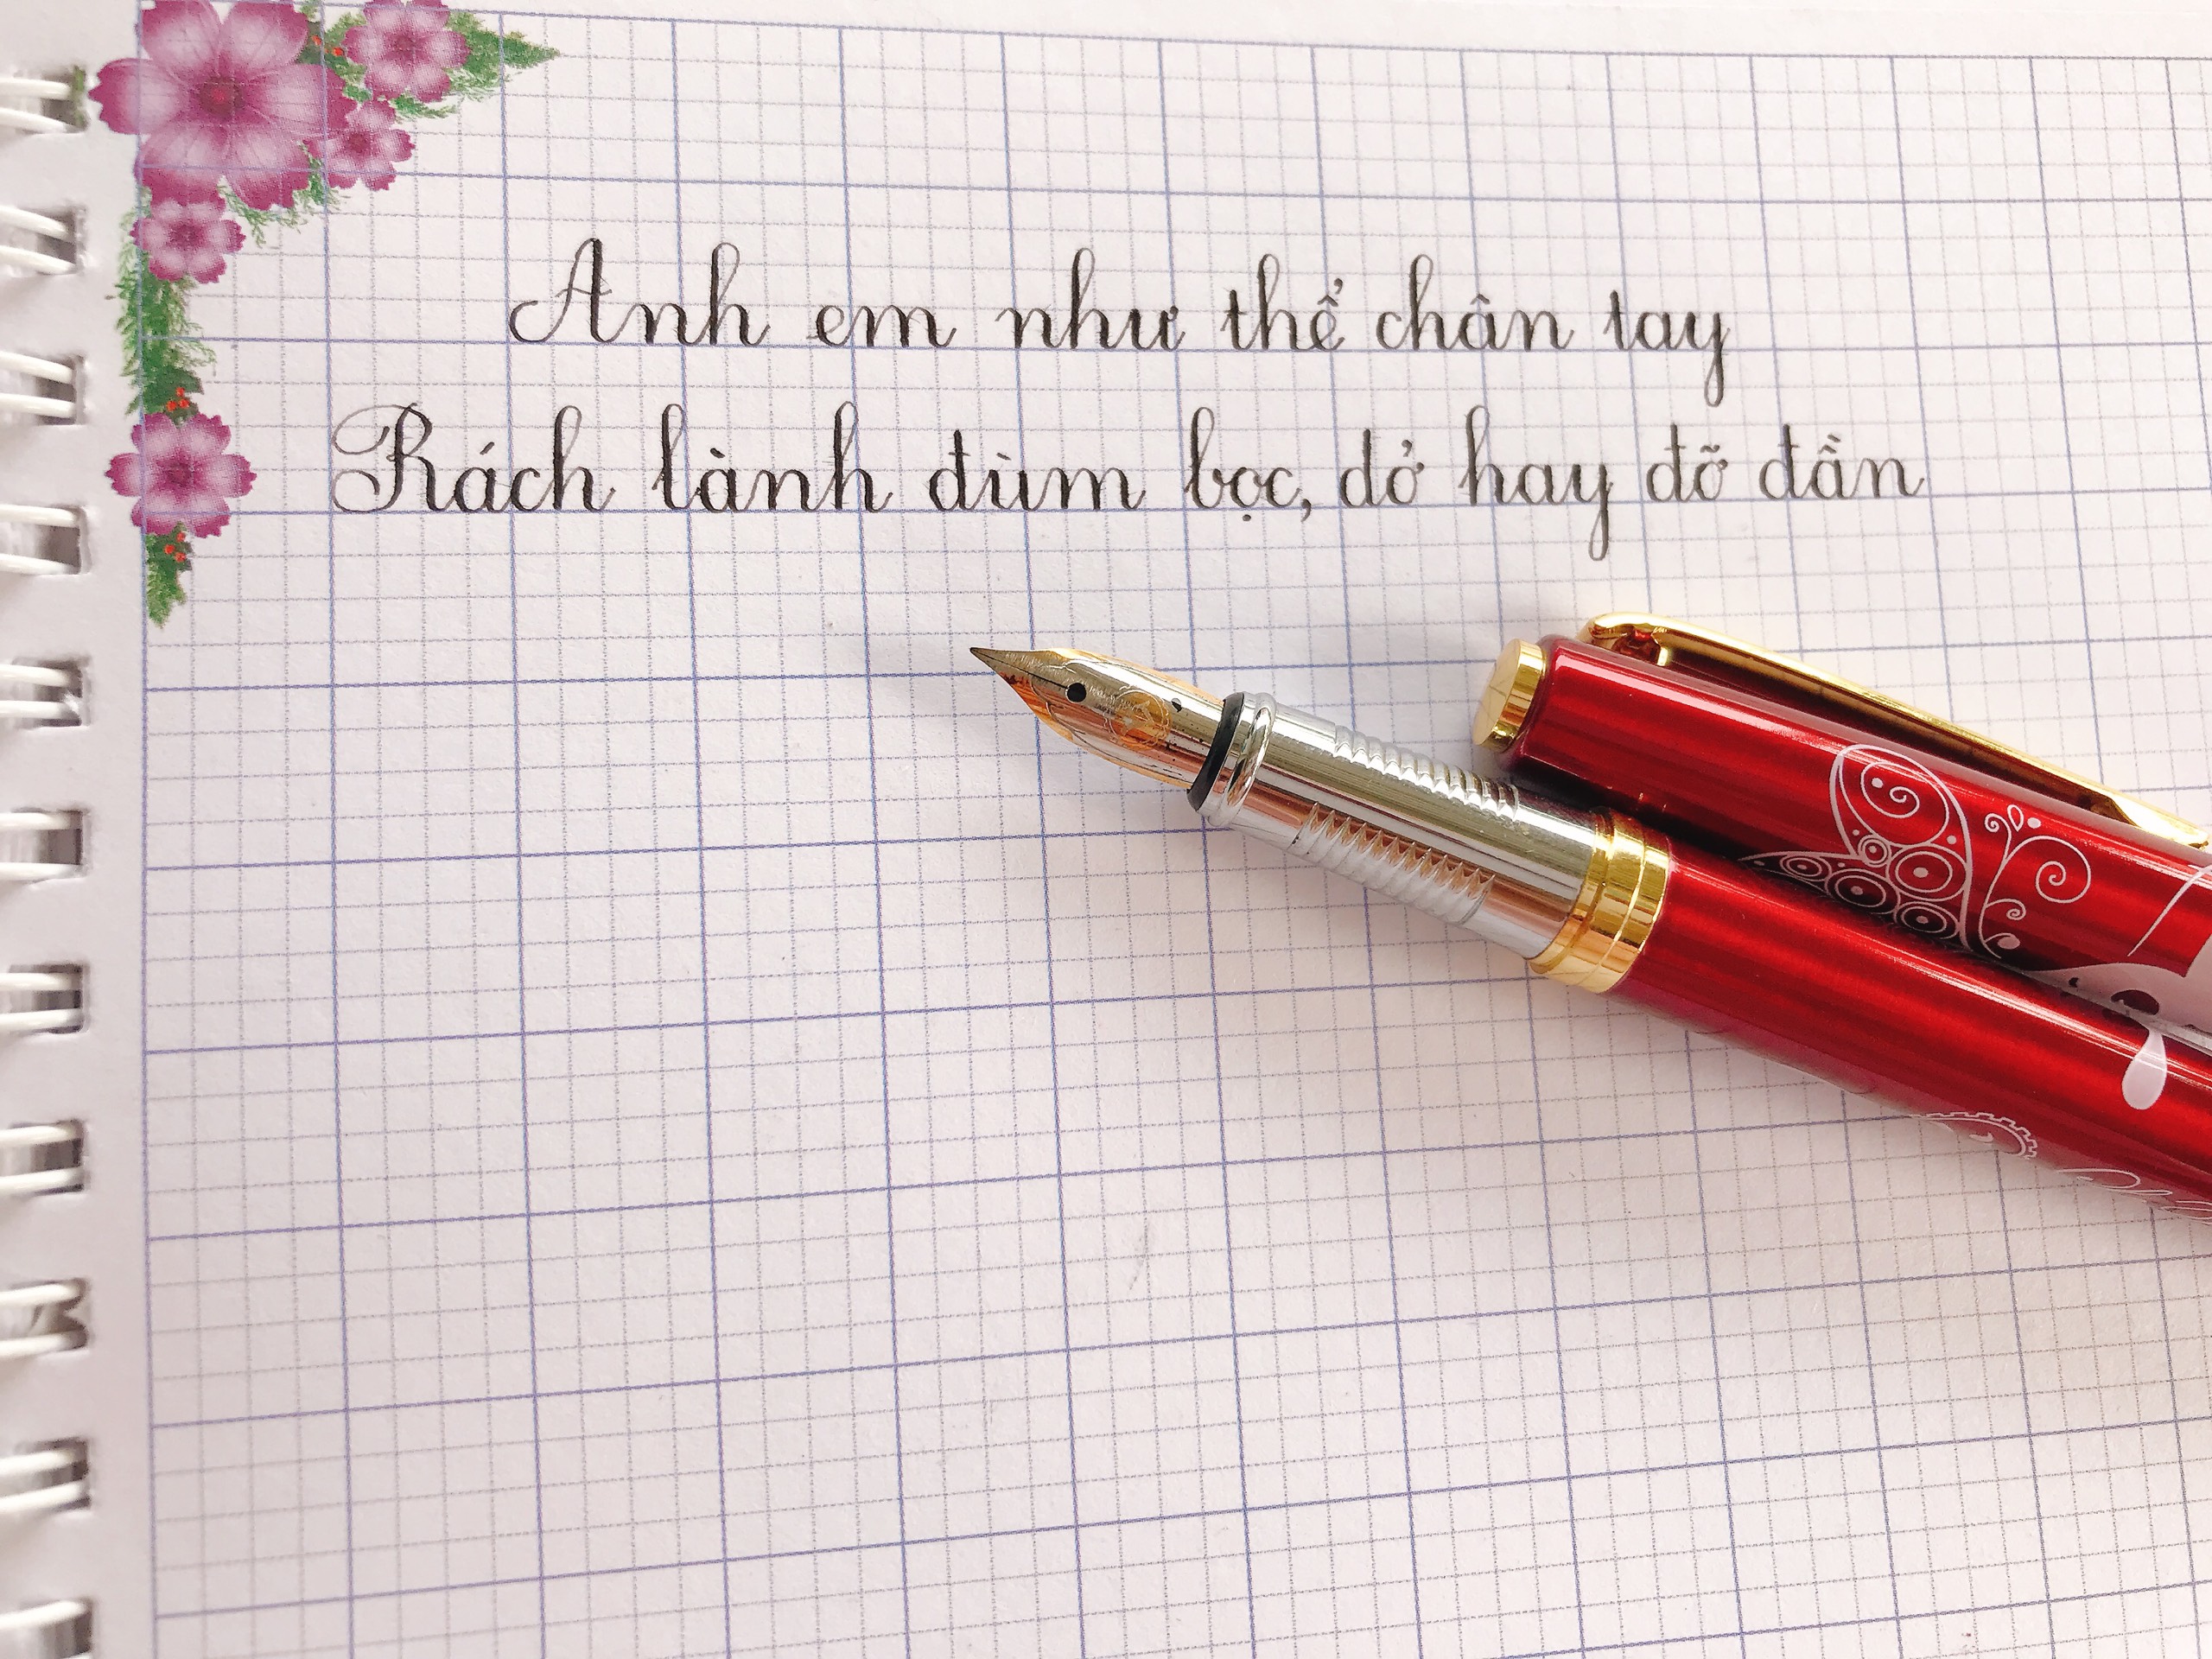 Anh em như thể chân tay
Rách lành đùm bọc, dở hay đỡ đần